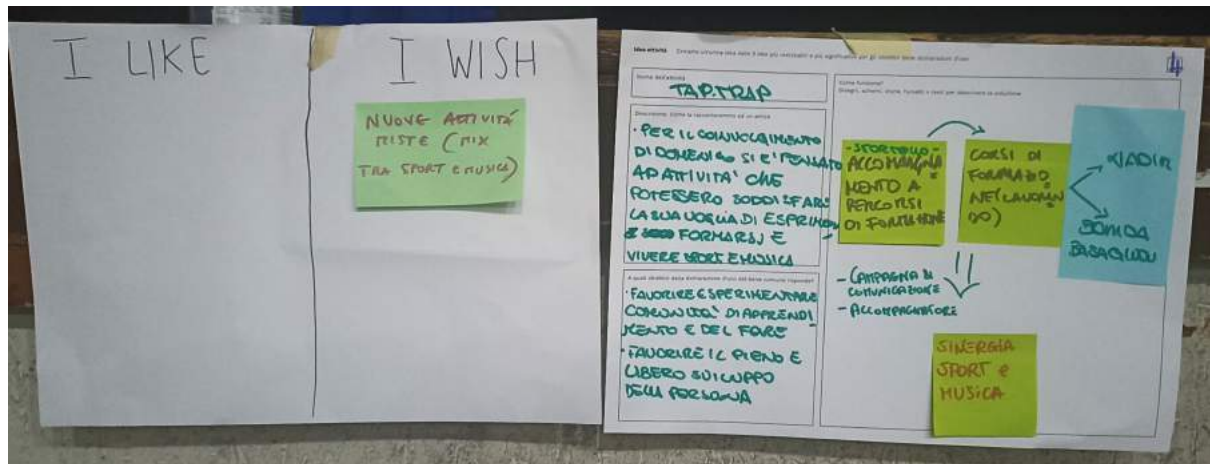 I LIKE
I WISH
NUOVE ATTIVITÁ
MISTE (MIX
TRA SPORT E MUSICA)
4
Idea attività
Nome dell'attività
TAP.TRAP
Descrizione. Come la racconteremmo ad un amico
• PER IL COINVOLGIMENTO
DI DOMENICO SI E' PENSATO
AD ATTIVITA' CHE
POTESSERO SODDISFARE
LA SUA VOGLIA DI ESPRIMERSI
FORMARSI E
VIVERE SPORT E MUSICA
A quali obiettivi della dichiarazione d'uso del bene comune risponde?
• FAVORIRE E SPERIMENTARE
COMUNITÀ DI APPRENDI
MENTO E DEL FARE
• FAVORIRE IL PIENO E
LIBERO SVILUPPO
DELLA PERSONA
Come funziona?
Disegni, schemi, storie, fumetti o testi per descrivere la soluzione
- SPORTELLO -
ACCOMPAGNA
MENTO A
PERCORSI
DI FORMAZIONE
CORSI DI
FORMAZIO
NE (LAVORAN
DO)
- CAMPAGNA DI
COMUNICAZIONE
- ACCOMPAGNATORE
SINERGIA
SPORT e
MUSICA